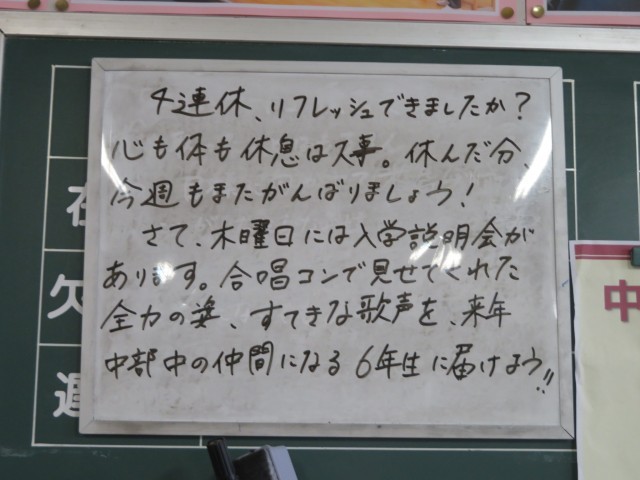 4連休、リフレッシュできましたか?
心も体も休息は大事。休んだ分、
今週もまたがんばりましょう!
さて、木曜日には入学説明会が
あります。合唱コンで見せてくれた
全力の姿、すてきな歌声を、来年
中部中の仲間になる6年生に届けよう!!
欠
中